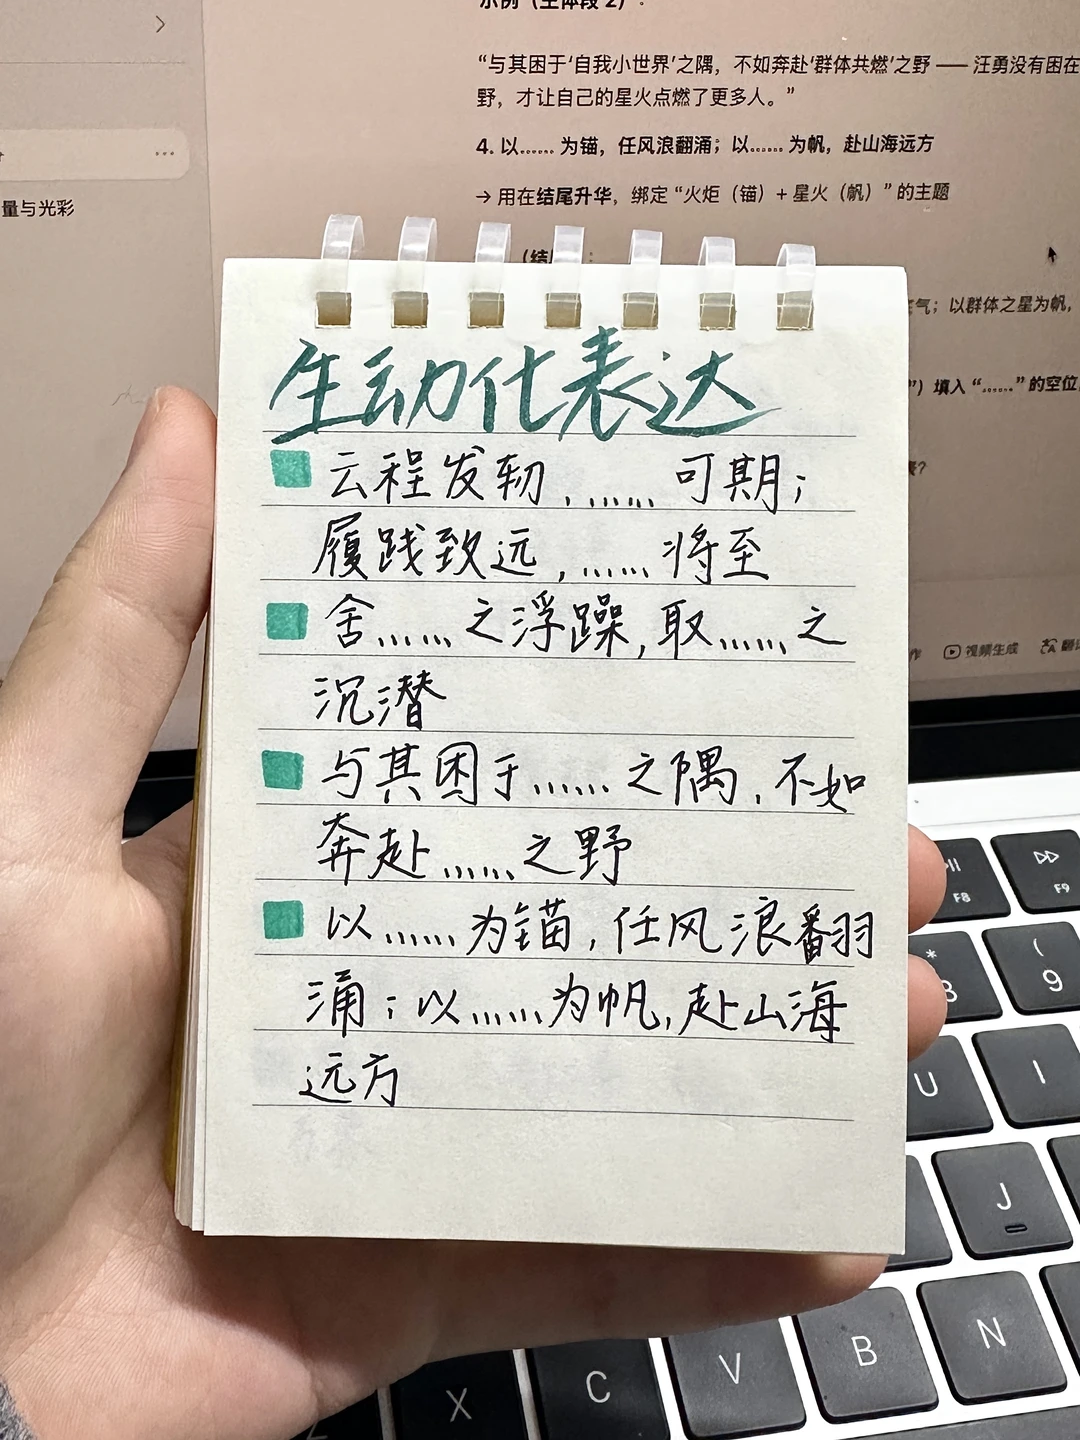 示例（主体段 2）：
“与其困于‘自我小世界’之隅，不如奔赴‘群体共燃’之野 —— 汪勇没有困在
野，才让自己的星火点燃了更多人。”
4. 以…… 为锚，任风浪翻涌；以…… 为帆，赴山海远方
→ 用在结尾升华，绑定 “火炬（锚）+ 星火（帆）” 的主题
量与光彩
（结
气；以群体之星为帆，
”）填入 “……” 的空位
生动化表达
云程发轫，……可期；
履践致远，……将至
舍……之浮躁，取……之
沉潜
与其困于……之隅，不如
奔赴……之野
以……为锚，任风浪翻
涌；以……为帆，赴山海
远方
作 视频生成
F8
F9
8
( 9
U
I
J
X
C
V
B
N